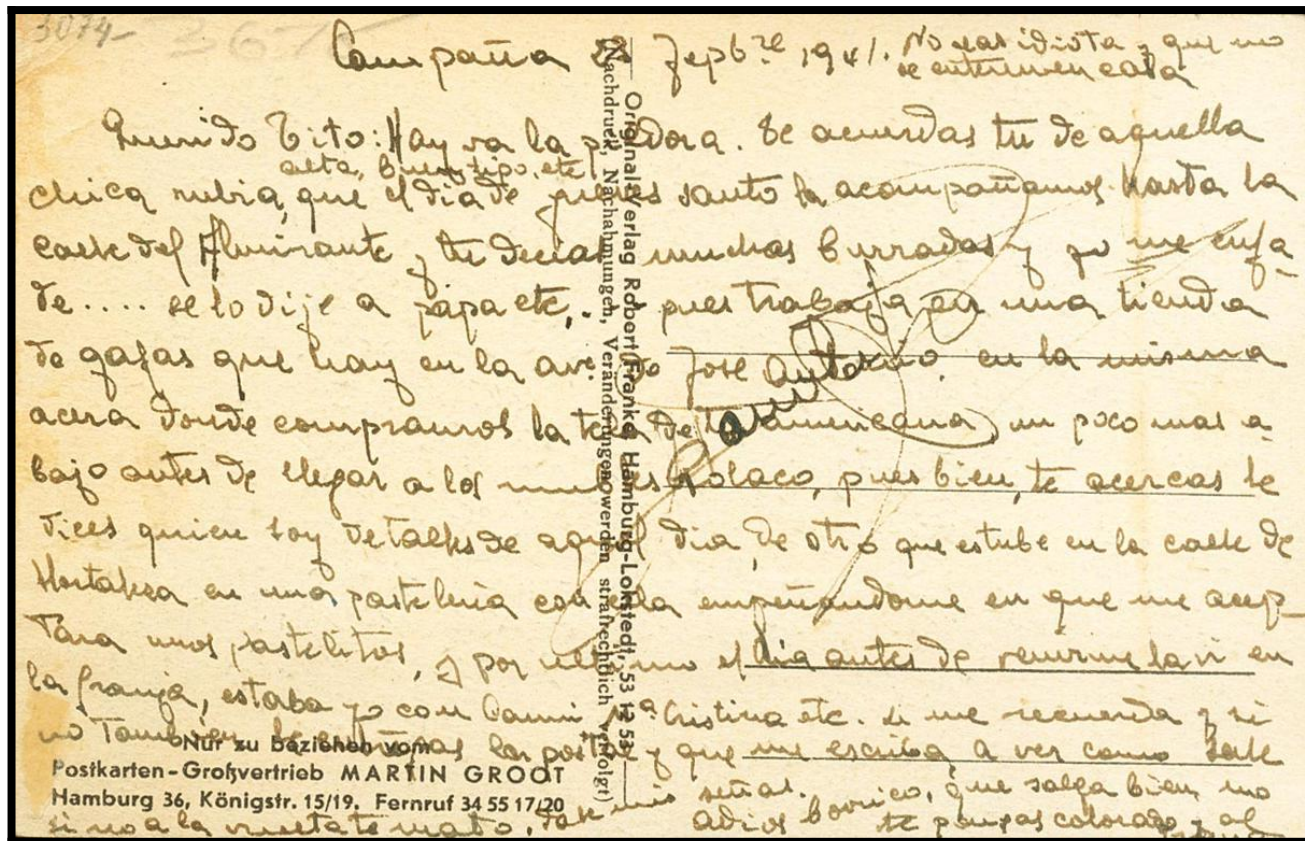 3074-
367
Campaña 28 Sepbre 1941. No seas idiota y que no
se enteren en casa
Querido Tito: Hay va la p dora. Te acuerdas tu de aquella
alta, buen tipo, etc
chica rubia, que el dia de jueves santo la acompañamos hasta la
calle del Almirante, y tu decias muchas burradas y yo me enfa-
de..... se lo dije a papa etc,. pues trabaja en una tienda
de gafas que hay en la av. de Jose Antonio. en la misma
acera donde compramos la tela de la americana, un poco mas a-
bajo antes de llegar a los muebles Rolaco, pues bien, te acercas le
dices quien soy detalles de aquel dia, de otro que estube en la calle de
Hortaleza en una pasteleria con ella empeñandome en que me acep-
tara unos pastelitos, y por ultimo el dia antes de venirme la vi en
la Granja, estaba yo con Mª Cristina etc. si me recuerda y si
no tambien le enseñas las postal y que me escriba a ver como sale
si no a la vuelta te mato, dale mis señas. adios borrico, que salga bien, no
te pongas colorado y al
Original-Verlag Robert Franke, Hamburg-Lokstedt, 53 12 53
(Nachdruck, Nachahmungen, Veränderungen werden strafrechtlich verfolgt)
Nur zu beziehen vom
Postkarten-Großvertrieb MARTIN GROOT
Hamburg 36, Königstr. 15/19. Fernruf 34 55 17/20